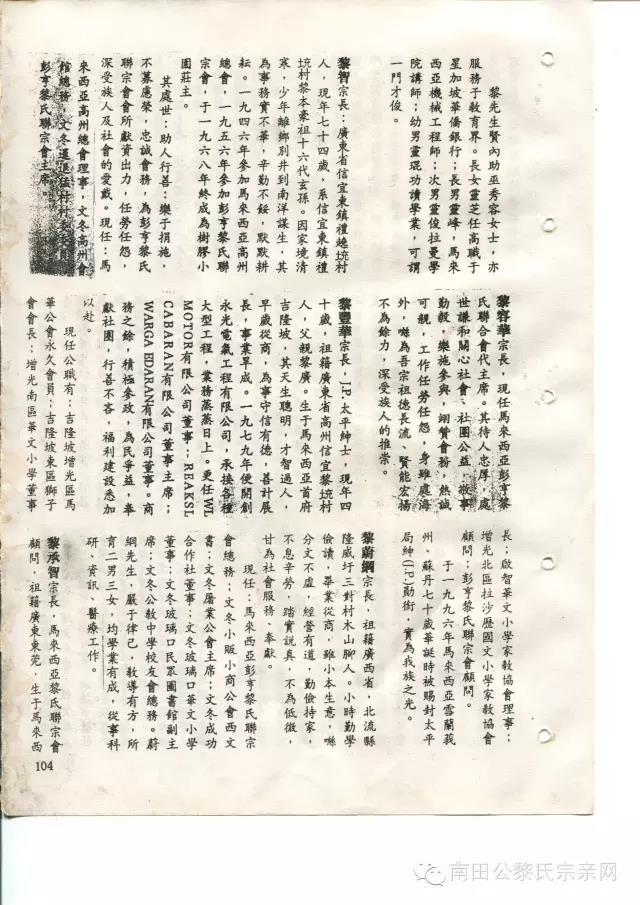 黎先生賢內助巫秀容女士，亦
服務于教育界。長女靈芝任高職于
星加坡華僑銀行；長男靈峰，馬來
西亞機械工程師；次男靈俊拉曼學
院講師；幼男靈琨功讀學業，可謂
一門才俊。
黎智宗長：廣東省信宜東鎮禮垌村
人，現年七十四歲，系信宜東鎮禮
垌村黎本豪祖十六代玄孫。因家境清
寒，少年離鄉別井到南洋謀生，其
為事務實不華，辛勤不綏，默默耕
耘。一九四六年參加馬來西亞高州
總會，一九五六年參加彭亨黎氏聯
宗會，于一九六八年終成為樹膠小
園莊主。
其處世：助人行善；樂于捐施，
不募慮榮，忠誠會務，為彭亨黎氏
聯宗會會所獻資出力，任勞任怨，
深受族人及社會的愛戴。現任：馬
來西亞高州總會理事，文冬高州會
館總務，文冬
彭亨黎氏聯宗會主席。
黎容華宗長，現任馬來西亞彭亨黎
氏聯合會代主席。其待人忠厚，處
世謙和關心社會、社團公益，敬事
勤毅，樂施參與，翊贊會務，熱誠
可親，工作任勞任怨，身雖處海
外，嘫為吾宗祖德長流、賢能宏揚
不為餘力，深受族人的推崇。
黎豐華宗長，J.P.太平紳士，現年四
十歲，祖籍廣東省高州信宜黎垌村
人，父親黎廣。生于馬來西亞首府
吉隆坡，其天生聰明，才智過人，
早歲從商，為事守信有德，善計展
長，事業早成。一九七九年便開創
永光電氣工程有限公司，承接各種
大型工程，業務蒸蒸日上。更任WI
MOTOR有限公司董事；REAKSI
CABARAN有限公司董事主席；
WARGA EDARAN有限公司董事。商
務之餘，積極參政，為民爭益，奉
獻社團，行善不吝，福利建設悉加
以赴。
現任公職有：吉隆坡增光區馬
華公會永久會員；吉隆坡東區獅子
會會長；增光南區華文小學董事
長；啟智華文小學家教協會理事；
增光北區拉沙歷國文小學家教協會
顧問；彭亨黎氏聯宗會顧問。
于一九九六年馬來西亞雪蘭莪
州、蘇丹七十歲華誕時被賜封太平
局紳(J.P.)勛銜，實為我族之光。
黎蔚綱宗長，祖籍廣西省，北流縣
隆威圩三對村木山腳人。小時勤學
儉讀，畢業從商，雖小本生意，嘫
分文不虛，經營有道，勤儉持家，
不息辛勞，踏實說真，不為低微，
甘為社會服務、奉獻。
現任：馬來西亞彭亨黎氏聯宗
會總務；文冬小販小商公會西文
書；文冬屠業公會主席；文冬成功
合作社董事；文冬玻璃口華文小學
董事；文冬玻璃口民眾圖書館副主
席；文冬公教中學校友會總務。蔚
綱先生，嚴于律己，教導有方，所
育二男三女，均學業有成，從事科
研、資訊、醫療工作。
黎承智宗長，馬來西亞黎氏聯宗會
顧問，祖籍廣東東莞，生于馬來西
104
南田公黎氏宗亲网